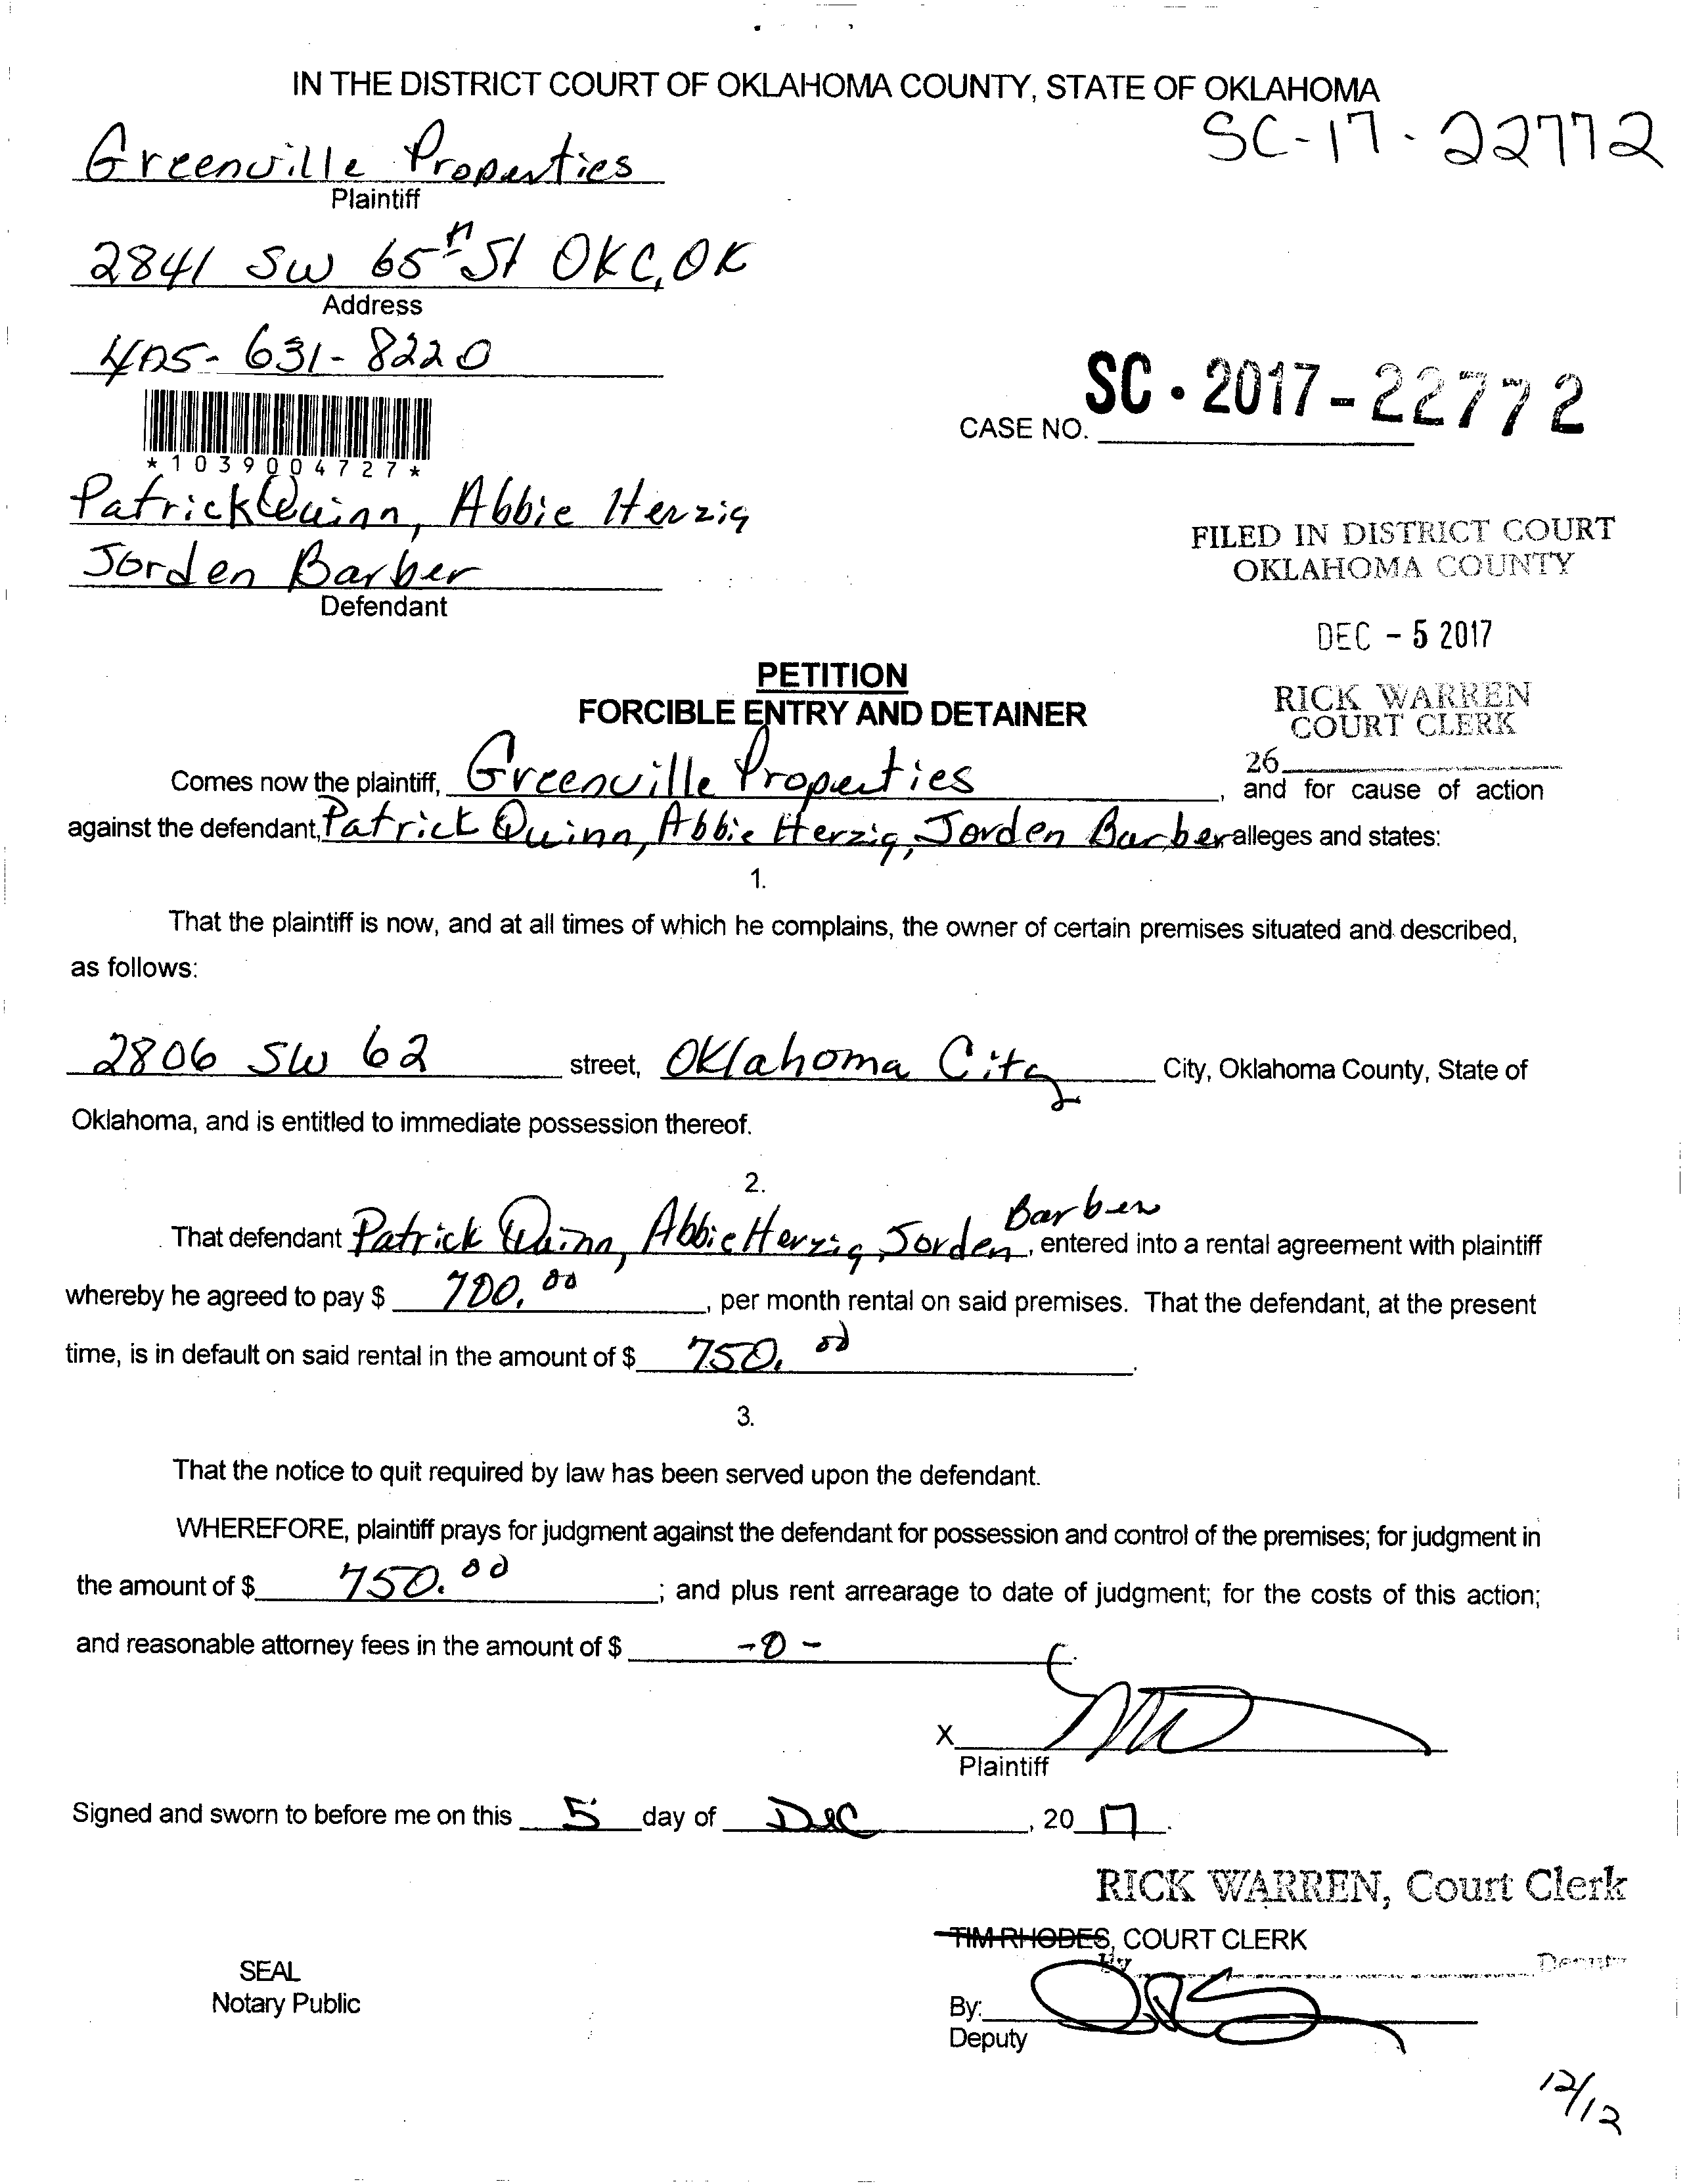 IN THE DISTRICT COURT OF OKLAHOMA COUNTY, STATE OF OKLAHOMA
SC-17-22772
Greenville Properties
Plaintiff
2841 SW 65th St OKC, OK
Address
405-631-8220
SC-2017-22772
CASE NO.
*1039004727*
Patrick Quinn, Abbie Herzig
Jorden Barber
Defendant
FILED IN DISTRICT COURT
OKLAHOMA COUNTY
DEC - 5 2017
RICK WARREN
COURT CLERK
26
PETITION
FORCIBLE ENTRY AND DETAINER
Comes now the plaintiff, Greenville Properties, and for cause of action
against the defendant, Patrick Quinn, Abbie Herzig, Jorden Barber alleges and states:
1.
That the plaintiff is now, and at all times of which he complains, the owner of certain premises situated and described,
as follows:
2806 SW 62 street, Oklahoma City City, Oklahoma County, State of
Oklahoma, and is entitled to immediate possession thereof.
2.
That defendant Patrick Quinn, Abbie Herzig, Jorden Barber, entered into a rental agreement with plaintiff
whereby he agreed to pay $ 700.00, per month rental on said premises. That the defendant, at the present
time, is in default on said rental in the amount of $ 750.00.
3.
That the notice to quit required by law has been served upon the defendant.
WHEREFORE, plaintiff prays for judgment against the defendant for possession and control of the premises; for judgment in
the amount of $ 750.00; and plus rent arrearage to date of judgment; for the costs of this action;
and reasonable attorney fees in the amount of $ -0-.
X
Plaintiff
Signed and sworn to before me on this 5 day of Dec, 2017.
RICK WARREN, Court Clerk
TIM RHODES, COURT CLERK
By Deputy
SEAL
Notary Public
By:
Deputy
12/12